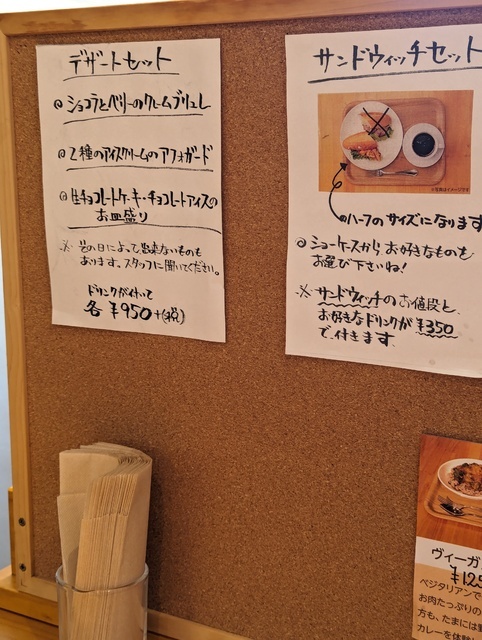 デザートセット
◎ショコラとベリーのクレームブリュレ
◎2種のアイスクリームのアフォガード
◎生チョコレートケーキ・チョコレートアイスの
お皿盛り
※その日によって出来ないものも
あります。スタッフに聞いてください。
ドリンクが付いて
各 ¥950+(税)
サンドウィッチセット
※写真はイメージです
◎ハーフのサイズになります
◎ショーケースから、お好きなものを
お選び下さいね!
※サンドウィッチのお値段と、
お好きなドリンクが¥350
で、付きます。
ヴィーガ
¥125
ベジタリアンで
お肉たっぷりの
方も、たまには
カレーを体験し